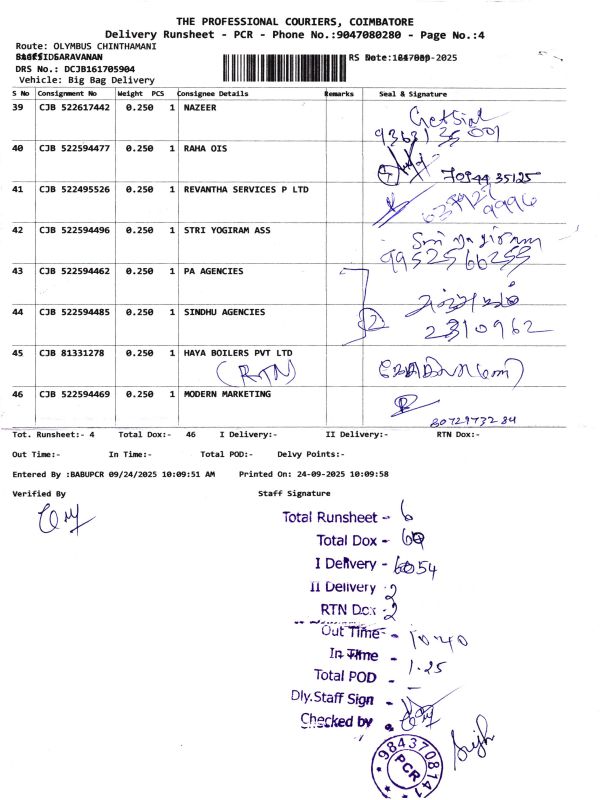 THE PROFESSIONAL COURIERS, COIMBATORE
Delivery Runsheet - PCR - Phone No.:9047080280 - Page No.:4
Route: OLYMBUS CHINTHAMANI
DRS No.: DCJB161705904
Vehicle: Big Bag Delivery
S No Consignment No Weight PCS Consignee Details Remarks Seal & Signature
39 CJB 522617442 0.250 1 NAZEER
40 CJB 522594477 0.250 1 RAHA OIS
70944 35125
41 CJB 522495526 0.250 1 REVANTHA SERVICES P LTD
42 CJB 522594496 0.250 1 STRI YOGIRAM ASS
99525 66255
43 CJB 522594462 1 PA AGENCIES
44 CJB 522594485 0.250 1 SINDHU AGENCIES
2310962
45 CJB 81331278 0.250 1 HAYA BOILERS PVT LTD
(RTN)
46 CJB 522594469 0.250 1 MODERN MARKETING
Tot. Runsheet:- 4 Total Dox:- 46 I Delivery:- II Delivery:- RTN Dox:-
Out Time:- In Time:- Total POD:- Delvy Points:-
Entered By :BABUPCR 09/24/2025 10:09:51 AM Printed On: 24-09-2025 10:09:58
Verified By Staff Signature
Total Runsheet - 6
Total Dox -
I Delivery - 54
II Delivery - 2
RTN Dox - 2
Out Time - 10.40
In Time - 1.25
Total POD -
Dly.Staff Sign -
Checked by
9843708141
PCR